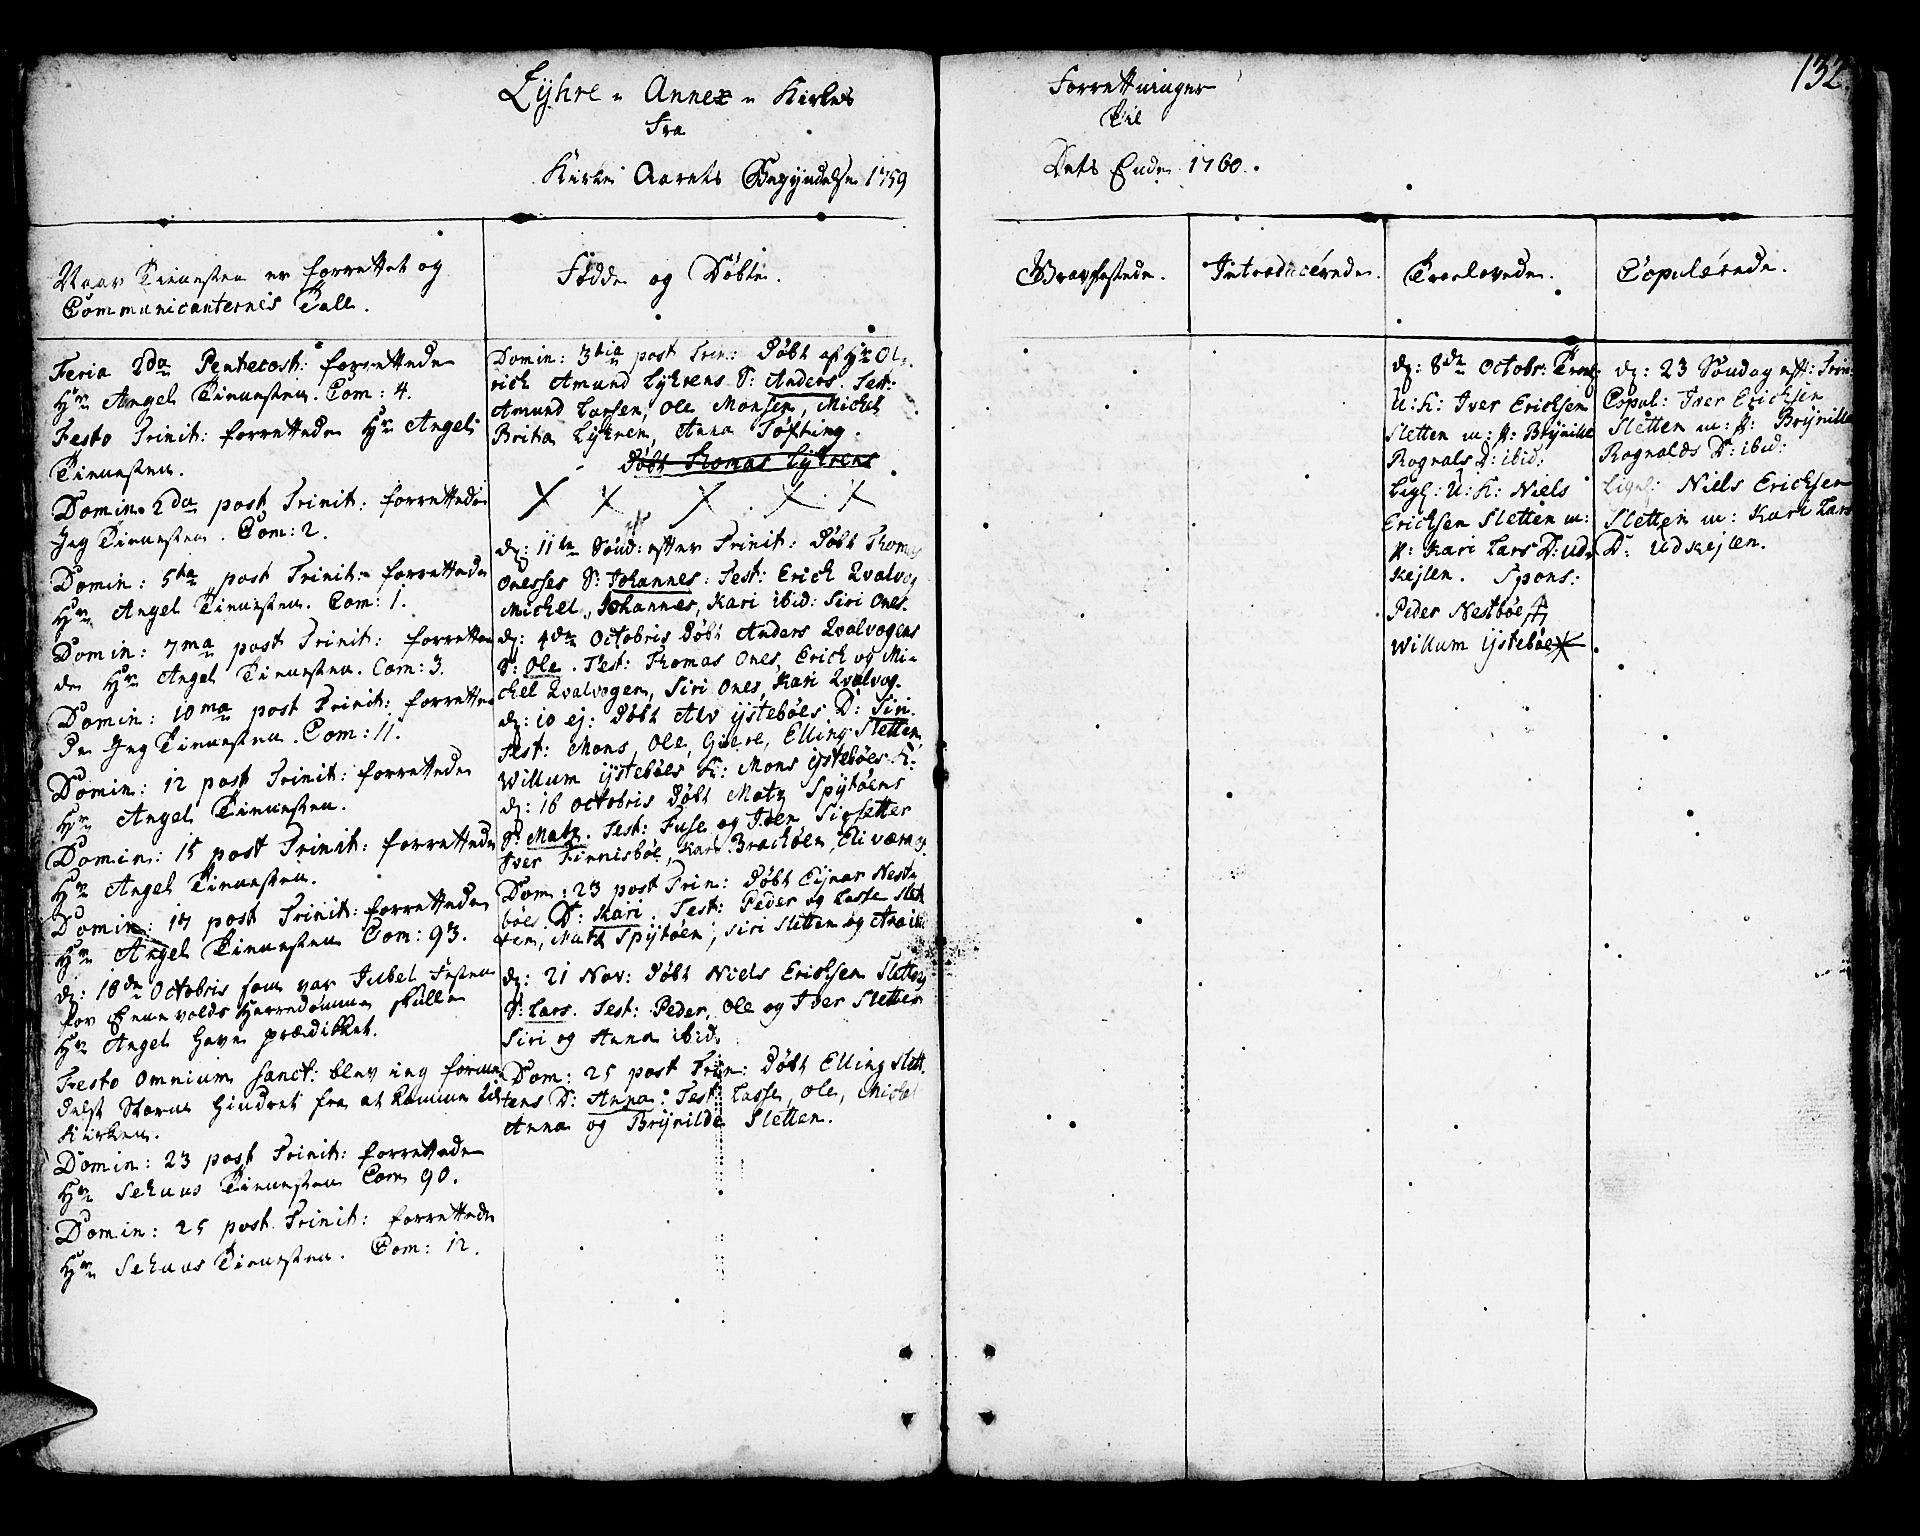 132.
Lyhre Annex Kirkes
fra
Kirke Aarets Begyndelse 1759
Forrettninger
til
Dets Ende 1760.
Naar Tienesten er forrettet og
Communicanternes Tall.
Feria 2da Pentecost: forrettede
Hr Angel Tienesten. Com: 4.
Festo Trinit: forrettede Hr Angel
Tienesten.
Domin. 2da post Trinit: forrettede
Jeg Tienesten. Com: 2.
Domin: 5ta post Trinit: forrettede
Hr Angel Tienesten. Com: 1.
Domin: 7ma post Trinit: forrette
de Hr Angel Tienesten. Com: 3.
Domin: 10ma post Trinit: forrette
de Jeg Tienesten. Com: 11.
Domin: 12 post Trinit: forrettede
Hr Angel Tienesten.
Domin: 15 post Trinit: forrettede
Hr Angel Tienesten.
Domin: 17 post Trinit: forrettede
Hr Angel Tienesten Com: 93.
d: 18de Octobris som var Jubel Festen
for Enevolds Herredømme skulle
Hr Angel have prædikket.
Festo Omnium Sanct: blev jeg formе
delst Storm hindret fra at komme til
Kirken.
Domin: 23 post Trinit: forrettede
Hr Sehuus Tienesten Com 90.
Domin: 25 post Trinit: forrettede
Hr Sehuus Tienesten. Com: 12.
Fødde og Døbte.
Domin: 3tia post Trin: Døbt af Hr Ol-
rich Amund Lyhrens S: Anders. Test:
Amund Larsen, Ole Monsen, Michel
Brita Lyhren, Anna Softing.
Døbt Thomas Lyhrens
d: 11te Sønd: efter Trinit: Døbt Thomas
Oneses S: Johannes: Test: Erich Qvalvog
Michel, Johannes, Kari ibid: Siri Ones.
d: 4de Octobris Døbt Anders Qvalvogens
S: Ole. Test: Thomas Ones, Erich og Mi-
chel Qvalvogen, Siri Ones, Kari Qvalvog.
d: 10 ej: Døbt Alv ijstebøes D: Siri.
Test: Mons, Ole, Giere, Elling Sletten,
Willum ijstebøes K: Mons ijstebøes K:
d: 16 Octobris Døbt Matz Spijtøens
S: Matz. Test: Fuse og Iven Sioesetter
Iver Finnisbøe, Kari Bratøen, Eli
Dom: 23 post Trin: Døbt Eijnar Nest-
bøes D: Kari. Test: Peder og Lasse Slet
ten, Matz Spijtøen, Siri Sletten og
d: 21 Nov: Døbt Niels Erichsen Slettens
S: Lars. Test: Peder, Ole og Iver Sletten
Siri og Anna ibid.
Dom: 25 post Trin: Døbt Elling Slet-
tens D: Anna: Test: Lasse, Ole, Michel
Anna og Brijnilde Sletten.
Gravfæstede.
Introducérede.
Troelovede.
d: 8de Octobr: Troel:
U: K: Iver Erichsen
Sletten m: P: Brijnille
Rognals D: ibid:
Ligl: U: K: Niels
Erichsen Sletten m:
P: Kari Lars D: Ud-
kejlen. Spons:
Peder Nestbøe
Willum ijstebøe
Copulérede.
d: 23 Søndag eft: Trin:
Copul: Iver Erichsen
Sletten m: P: Brijnille
Rognalds D: ibid:
Ligel: Niels Erichsen
Sletten m: Kari Lars
D: Udkejlen.